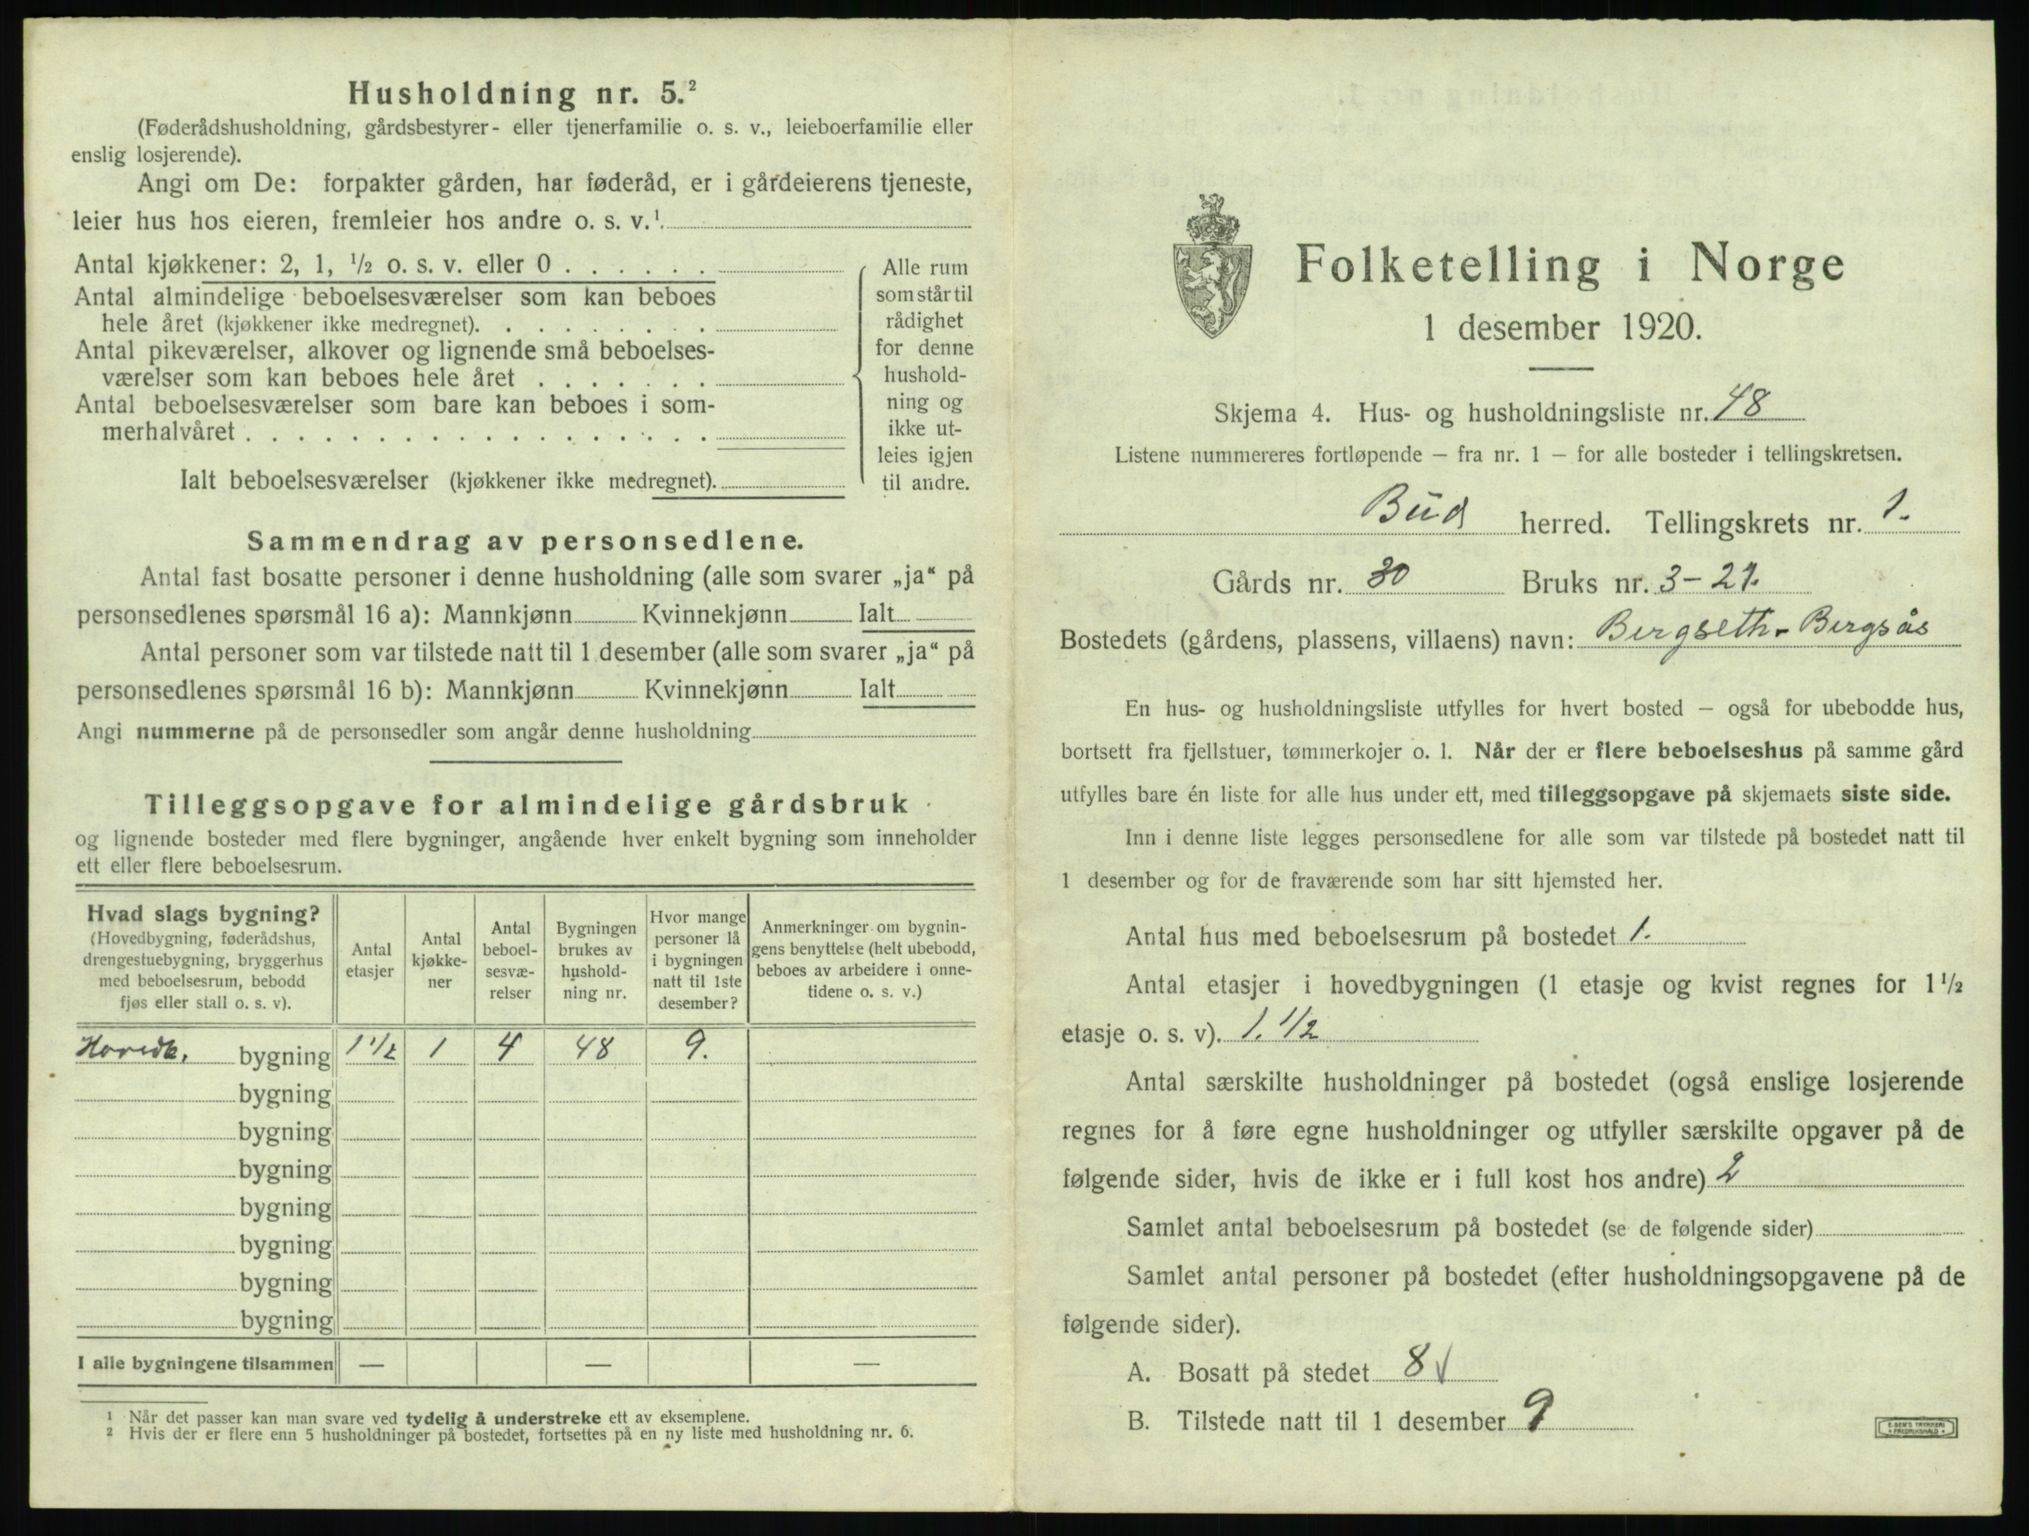 Husholdning nr. 5.²
(Føderådshusholdning, gårdsbestyrer- eller tjenerfamilie o. s. v., leieboerfamilie eller
enslig losjerende).
Angi om De: forpakter gården, har føderåd, er i gårdeierens tjeneste,
leier hus hos eieren, fremleier hos andre o. s. v.¹
Antal kjøkkener: 2, 1, ½ o. s. v. eller 0 . . . . . .
Antal almindelige beboelsesværelser som kan beboes
hele året (kjøkkener ikke medregnet). . . . . . . . .
Antal pikeværelser, alkover og lignende små beboelses-
værelser som kan beboes hele året . . . . . . .
Antal beboelsesværelser som bare kan beboes i som-
merhalvåret . . . . . . . . . . . . . . . . . .
Ialt beboelsesværelser (kjøkkener ikke medregnet).
Alle rum
som står til
rådighet
for denne
hushold-
ning og
ikke ut-
leies igjen
til andre.
Sammendrag av personsedlene.
Antal fast bosatte personer i denne husholdning (alle som svarer „ja“ på
personsedlenes spørsmål 16 a): Mannkjønn Kvinnekjønn Ialt
Antal personer som var tilstede natt til 1 desember (alle som svarer „ja“ på
personsedlenes spørsmål 16 b): Mannkjønn Kvinnekjønn Ialt
Angi nummerne på de personsedler som angår denne husholdning
Tilleggsopgave for almindelige gårdsbruk
og lignende bosteder med flere bygninger, angående hver enkelt bygning som inneholder
ett eller flere beboelsesrum.
Hvad slags bygning?
(Hovedbygning, føderådshus,
drengestuebygning, bryggerhus
med beboelsesrum, bebodd
fjøs eller stall o. s. v).
Antal
etasjer
Antal
kjøkke-
ner
Antal
beboel-
sesvæ-
relser
Bygningen
brukes av
hushold-
ning nr.
Hvor mange
personer lå
i bygningen
natt til 1ste
desember?
Anmerkninger om bygnin-
gens benyttelse (helt ubebodd,
beboes av arbeidere i onne-
tidene o. s. v.)
Hovedb. bygning 1 ½ 1 4 48 9.
bygning
bygning
bygning
bygning
bygning
bygning
bygning
I alle bygningene tilsammen — — —
¹ Når det passer kan man svare ved tydelig å understreke ett av eksemplene.
² Hvis der er flere enn 5 husholdninger på bostedet, fortsettes på en ny liste med husholdning nr. 6.
Folketelling i Norge
1 desember 1920.
Skjema 4. Hus- og husholdningsliste nr. 48
Listene nummereres fortløpende – fra nr. 1 – for alle bosteder i tellingskretsen.
Bud herred. Tellingskrets nr. 1.
Gårds nr. 30 Bruks nr. 3-21.
Bostedets (gårdens, plassens, villaens) navn: Bergseth - Bergsås
En hus- og husholdningsliste utfylles for hvert bosted – også for ubebodde hus,
bortsett fra fjellstuer, tømmerkojer o. l. Når der er flere beboelseshus på samme gård
utfylles bare én liste for alle hus under ett, med tilleggsopgave på skjemaets siste side.
Inn i denne liste legges personsedlene for alle som var tilstede på bostedet natt til
1 desember og for de fraværende som har sitt hjemsted her.
Antal hus med beboelsesrum på bostedet 1.
Antal etasjer i hovedbygningen (1 etasje og kvist regnes for 1½
etasje o. s. v). 1. 1/2
Antal særskilte husholdninger på bostedet (også enslige losjerende
regnes for å føre egne husholdninger og utfyller særskilte opgaver på de
følgende sider, hvis de ikke er i full kost hos andre) 2
Samlet antal beboelsesrum på bostedet (se de følgende sider)
Samlet antal personer på bostedet (efter husholdningsopgavene på de
følgende sider).
A. Bosatt på stedet 8 √
B. Tilstede natt til 1 desember 9